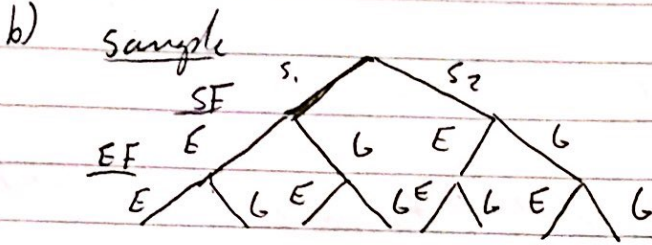 b) Sample
S₁ S₂
SF
E G E G
EF
E G E G E G E G